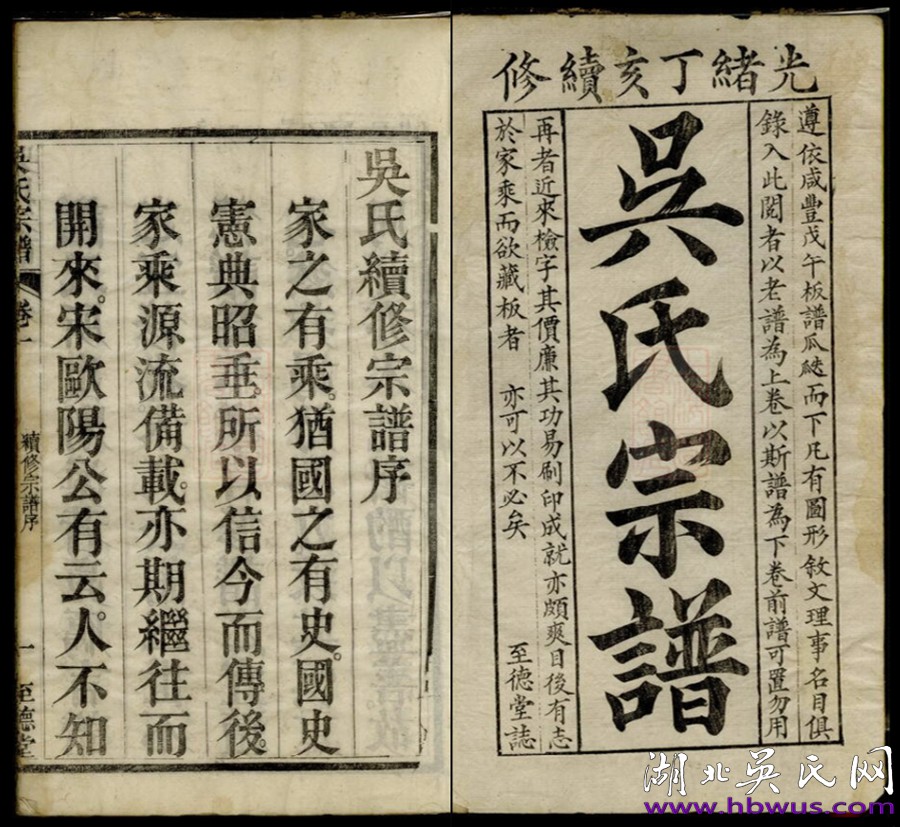 光緒丁亥續修
遵依咸豐戊午板譜瓜瓞而下凡有圖形敘文理事名目俱
錄入此閱者以老譜為上卷以斯譜為下卷前譜可置勿用
吳氏宗譜
再者近來檢字其價廉其功易刷印成就亦頗爽目後有志
於家乘而欲藏板者 亦可以不必矣 至德堂誌
吳氏續修宗譜序
家之有乘。猶國之有史。國史
憲典昭垂。所以信今而傳後。
家乘源流備載。亦期繼往而
開來。宋歐陽公有云。人不知
吳氏宗譜 卷一 續修宗譜序 一 至德堂
湖北吳氏网
www.hbwus.com